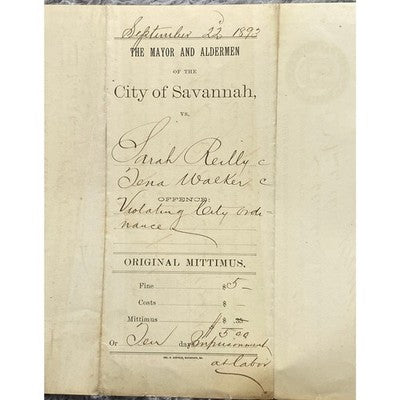 September 22 1893
THE MAYOR AND ALDERMEN
OF THE
City of Savannah,
VS.
Sarah Reilly c
Tena Walker c
OFFENCE:
Violating City Ordi-
nance
ORIGINAL MITTIMUS.
Fine $ 5 —
Costs $ —
Mittimus $ .35
$5.00
Or Ten days Imprisonment
at labor